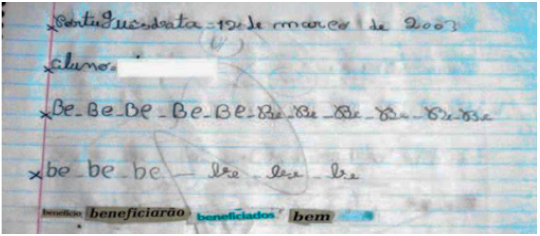 Portugues data = 12 de março de 2003
aluno
Be - Be - Be - Be - Be - Be - Be - Be - Be - Be - Be
be - be - be - be - be - be
benefício beneficiarão beneficiados bem